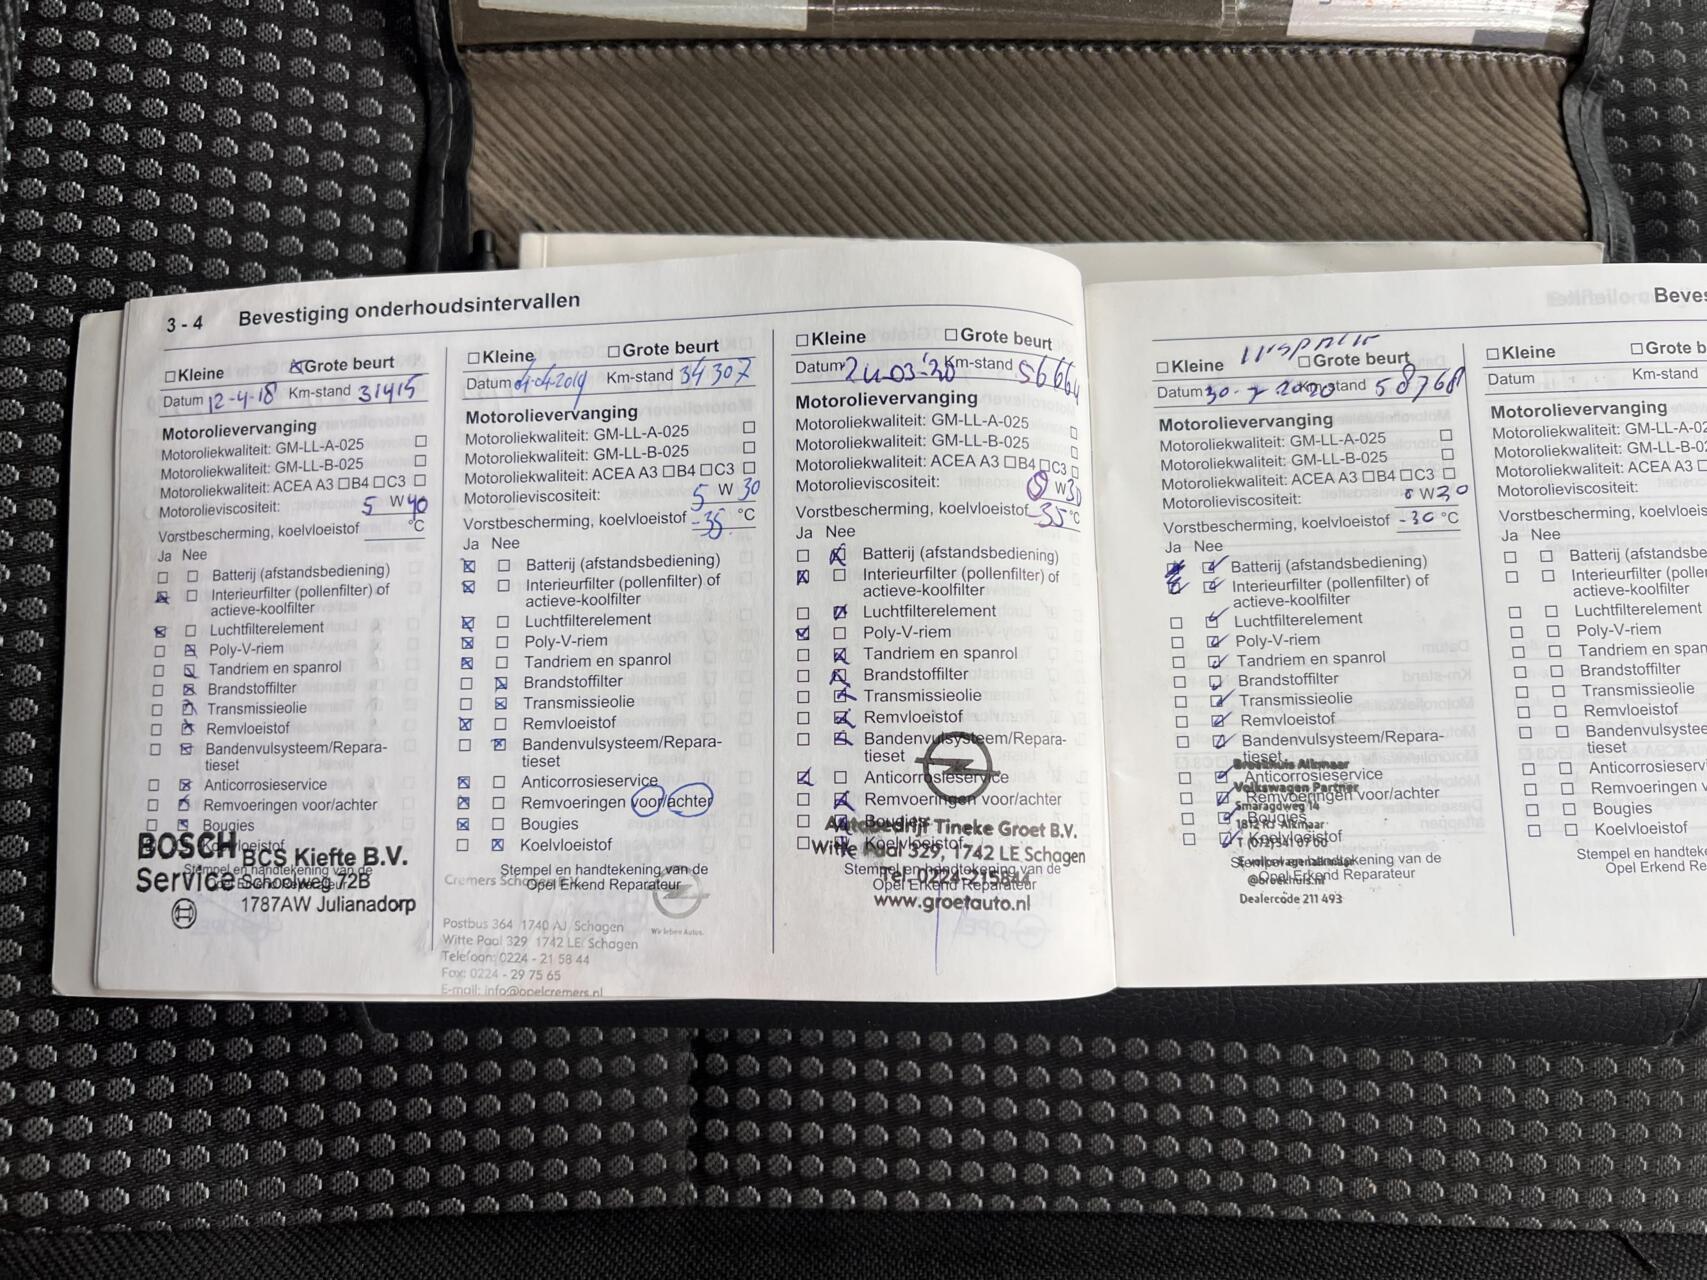 3 - 4 Bevestiging onderhoudsintervallen
Kleine Grote beurt
Datum 12-4-18 Km-stand 31415
Motorolievervanging
Motoroliekwaliteit: GM-LL-A-025
Motoroliekwaliteit: GM-LL-B-025
Motoroliekwaliteit: ACEA A3 B4 C3
Motorolieviscositeit: 5 W 40
Vorstbescherming, koelvloeistof °C
Ja Nee
Batterij (afstandsbediening)
Interieurfilter (pollenfilter) of
actieve-koolfilter
Luchtfilterelement
Poly-V-riem
Tandriem en spanrol
Brandstoffilter
Transmissieolie
Remvloeistof
Bandenvulsysteem/Repara-
tieset
Anticorrosieservice
Remvoeringen voor/achter
Bougies
Koelvloeistof
Stempel en handtekening van de
Opel Erkend Reparateur
BOSCH
Service
BCS Kiefte B.V.
Schoolweg 72B
1787AW Julianadorp
Kleine Grote beurt
Datum 04-04-2019 Km-stand 34307
Motorolievervanging
Motoroliekwaliteit: GM-LL-A-025
Motoroliekwaliteit: GM-LL-B-025
Motoroliekwaliteit: ACEA A3 B4 C3
Motorolieviscositeit: 5 W 30
Vorstbescherming, koelvloeistof -35 °C
Ja Nee
Batterij (afstandsbediening)
Interieurfilter (pollenfilter) of
actieve-koolfilter
Luchtfilterelement
Poly-V-riem
Tandriem en spanrol
Brandstoffilter
Transmissieolie
Remvloeistof
Bandenvulsysteem/Repara-
tieset
Anticorrosieservice
Remvoeringen voor/achter
Bougies
Koelvloeistof
Stempel en handtekening van de
Opel Erkend Reparateur
Cremers Schagen B.V.
Wir leben Autos.
Postbus 364 1740 AJ Schagen
Witte Paal 329 1742 LE Schagen
Telefoon: 0224 - 21 58 44
Fax: 0224 - 29 75 65
E-mail: info@opelcremers.nl
Kleine Grote beurt
Datum 24-03-'20 Km-stand 56664
Motorolievervanging
Motoroliekwaliteit: GM-LL-A-025
Motoroliekwaliteit: GM-LL-B-025
Motoroliekwaliteit: ACEA A3 B4 C3
Motorolieviscositeit: 0 W 30
Vorstbescherming, koelvloeistof -35 °C
Ja Nee
Batterij (afstandsbediening)
Interieurfilter (pollenfilter) of
actieve-koolfilter
Luchtfilterelement
Poly-V-riem
Tandriem en spanrol
Brandstoffilter
Transmissieolie
Remvloeistof
Bandenvulsysteem/Repara-
tieset
Anticorrosieservice
Remvoeringen voor/achter
Bougies
Koelvloeistof
Stempel en handtekening van de
Opel Erkend Reparateur
Autobedrijf Tineke Groet B.V.
Witte Paal 329, 1742 LE Schagen
Tel. 0224-215844
www.groetauto.nl
Kleine Grote beurt
Datum 30-7-2020 Km-stand 58768
Motorolievervanging
Motoroliekwaliteit: GM-LL-A-025
Motoroliekwaliteit: GM-LL-B-025
Motoroliekwaliteit: ACEA A3 B4 C3
Motorolieviscositeit: 0 W 30
Vorstbescherming, koelvloeistof -30 °C
Ja Nee
Batterij (afstandsbediening)
Interieurfilter (pollenfilter) of
actieve-koolfilter
Luchtfilterelement
Poly-V-riem
Tandriem en spanrol
Brandstoffilter
Transmissieolie
Remvloeistof
Bandenvulsysteem/Repara-
tieset
Anticorrosieservice
Remvoeringen voor/achter
Bougies
Koelvloeistof
Stempel en handtekening van de
Opel Erkend Reparateur
Broekhuis Alkmaar
Volkswagen Partner
Smaragdweg 14
1812 RJ Alkmaar
@broekhuis.nl
Dealercode 211 493
Beves
Kleine Grote b
Datum Km-stand
Motorolievervanging
Motoroliekwaliteit: GM-LL-A-02
Motoroliekwaliteit: GM-LL-B-02
Motoroliekwaliteit: ACEA A3
Motorolieviscositeit:
Vorstbescherming, koelvloeistof
Ja Nee
Batterij (afstandsbe
Interieurfilter (pollenfilter
actieve-koolfilter
Luchtfilterelement
Poly-V-riem
Tandriem en span
Brandstoffilter
Transmissieolie
Remvloeistof
Bandenvulsysteem
tieset
Anticorrosieservi
Remvoeringen v
Bougies
Koelvloeistof
Stempel en handteke
Opel Erkend Re